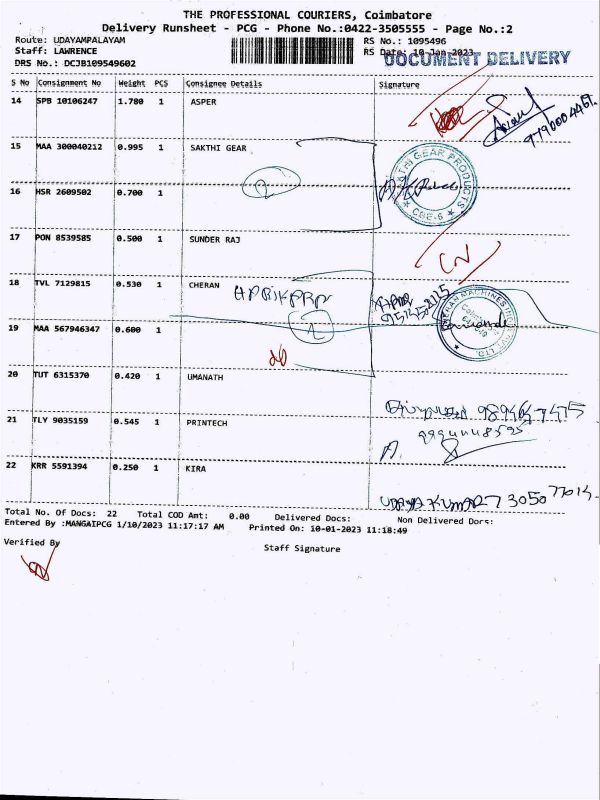 THE PROFESSIONAL COURIERS, Coimbatore
Delivery Runsheet - PCG - Phone No.:0422-3505555 - Page No.:2
Route: UDAYAMPALAYAM RS No.: 1095496
Staff: LAWRENCE RS Date: 10-Jan-2023
DOCUMENT DELIVERY
DRS No.: DCJB109549602
S No Consignment No Weight PCS Consignee Details Signature
14 SPB 10106247 1.780 1 ASPER
9790004461.
15 MAA 300040212 0.995 1 SAKTHI GEAR
SAKTHI GEAR PRODUCTS
★ CBE-6 ★
2
16 HSR 2609502 0.700 1
17 PON 8539585 0.500 1 SUNDER RAJ
CN
18 TVL 7129815 0.530 1 CHERAN
2
19 MAA 567946347 0.600 1
20 TUT 6315370 0.420 1 UMANATH
21 TLY 9035159 0.545 1 PRINTECH
22 KRR 5591394 0.250 1 KIRA
UDAYAKUMAR
Total No. Of Docs: 22 Total COD Amt: 0.00 Delivered Docs: Non Delivered Docs:
Entered By :MANGAIPCG 1/10/2023 11:17:17 AM Printed On: 10-01-2023 11:18:49
Verified By Staff Signature